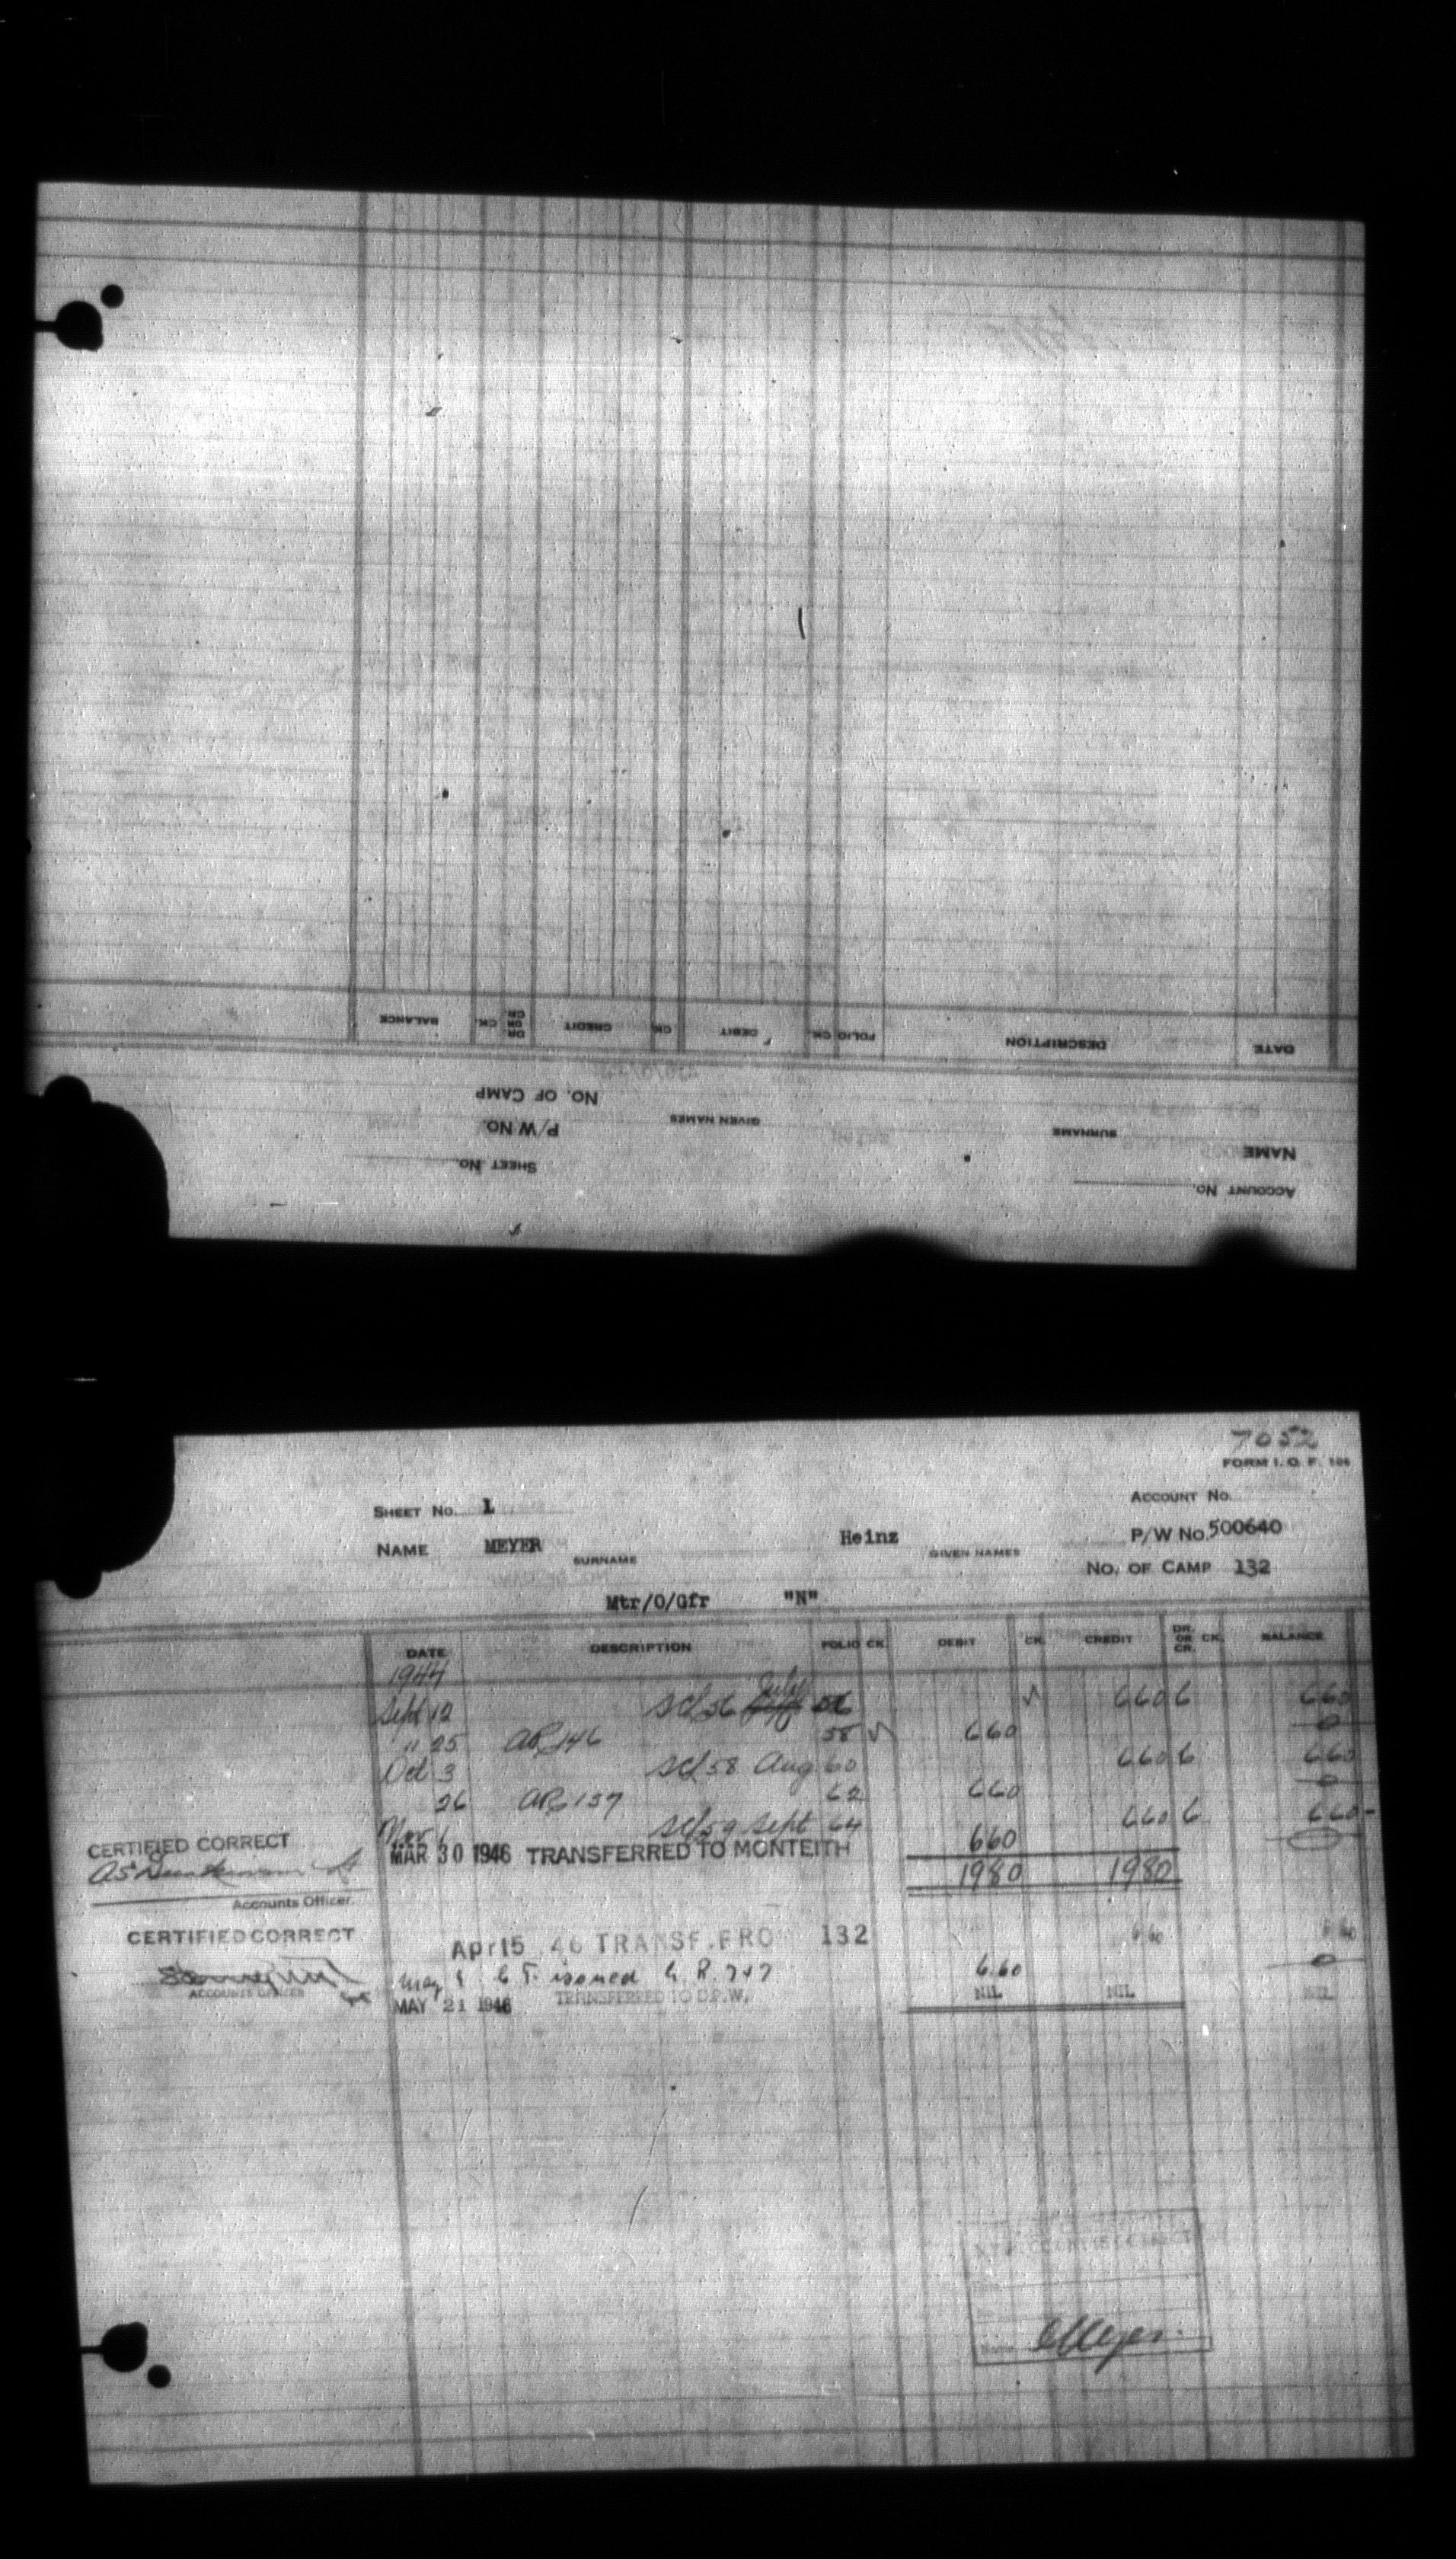 BALANCE CK. DR. OR CR. CREDIT CK. DEBIT FOLIO CK. DESCRIPTION DATE
NO. OF CAMP
P/W NO. GIVEN NAMES SURNAME NAME
SHEET NO. ACCOUNT NO.
7052
FORM I. O. F. 106
SHEET NO. 1 ACCOUNT NO.
NAME MEYER Heinz P/W NO. 500640
SURNAME GIVEN NAMES
NO. OF CAMP 132
Mtr/O/Gfr "N"
DATE DESCRIPTION FOLIO CK. DEBIT CK. CREDIT DR. OR CR. CK. BALANCE
1944
July
Sept 12 56 660 660
" 25 146 58 660 0
Oct 3 58 Aug 60 660 660
26 157 62 660 0
Nov 1 59 Sept 64 660 660
MAR 30 1946 TRANSFERRED TO MONTEITH 660 0
1980 1980
CERTIFIED CORRECT
Accounts Officer.
Apr 15 46 TRANSF. FRO 132 6 60 6 60
CERTIFIED CORRECT
ACCOUNTS OFFICER
May issued 6.60 0
MAY 21 1946 TRANSFERRED TO D.P.W. NIL NIL NIL
Meyer